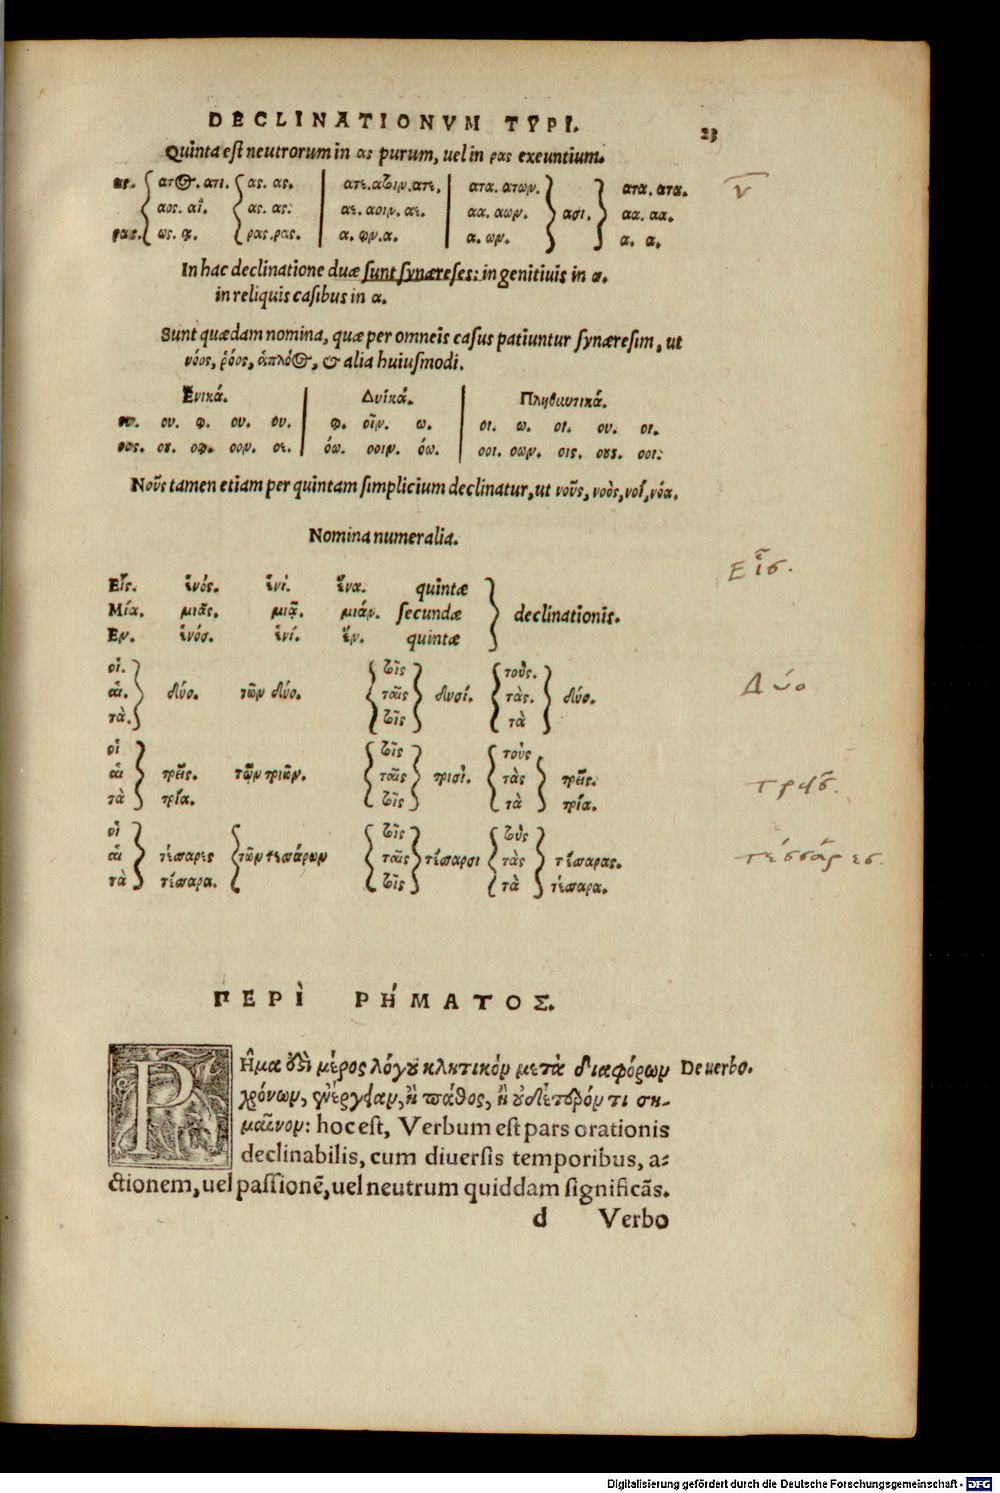 DECLINATIONVM TYPI.
23
Quinta est neutrorum in ας purum, uel in ρας exeuntium.
ας. ατος. ατι. ας. ας. ατε. ατοιν. ατε. ατα. ατων. ατα. ατα.
αος. αϊ. ας. ας. αε. αοιν. αε. αα. αων. ασι. αα. αα.
ρας. ως. ᾳ. ρας. ρας. α. ῳν. α. α. ων. α. α.
ν
In hac declinatione duæ sunt synæreses: in genitiuis in ω.
in reliquis casibus in α.
Sunt quædam nomina, quæ per omneis casus patiuntur synæresim, ut
νόος, ῥόος, ἁπλόος, & alia huiusmodi.
Ενικά. Δυϊκά. Πληθωτικά.
ου. ῳ. ουν. ου. ω. οιν. ω. οι. ων. οις. ους. οι.
οος. οου. οῳ. οον. οε. όω. οοιν. όω. οοι. οων. οις. οους. οοι.
Νοῦς tamen etiam per quintam simplicium declinatur, ut νοῦς, νοὸς, νοΐ, νόα.
Nomina numeralia.
Εἷς. ἑνός. ἑνί. ἕνα. quintæ
Μία. μιᾶς. μιᾷ. μιάν. secundæ declinationis.
Εν. ἑνός. ἑνί. ἕν. quintæ
Εἷσ.
οἱ. τοῖς τοὺς.
αἱ. δύο. τῶν δύο. ταῖς δυσί. τὰς. δύο.
τὰ. τοῖς τὰ
Δύο
οἱ τοῖς τοὺς
αἱ τρεῖς. τῶν τριῶν. ταῖς τρισί. τὰς τρεῖς.
τὰ τρία. τοῖς τὰ τρία.
τρεῖσ.
οἱ τοῖς τοὺς
αἱ τέσσαρες τῶν τεσσάρων ταῖς τέσσαρσι τὰς τέσσαρας.
τὰ τέσσαρα. τοῖς τὰ τέσσαρα.
τέσσάρεσ.
ΠΕΡΙ ΡΗΜΑΤΟΣ.
Ρῆμα ἐστὶ μέρος λόγου κλητικὸν μετὰ διαφόρων De uerbo.
χρόνων, ἐνέργειαν, ἢ πάθος, ἢ οὐδέτερόν τι ση-
μαῖνον: hoc est, Verbum est pars orationis
declinabilis, cum diuersis temporibus, a-
ctionem, uel passionē, uel neutrum quiddam significās.
d Verbo
Digitalisierung gefördert durch die Deutsche Forschungsgemeinschaft · DFG